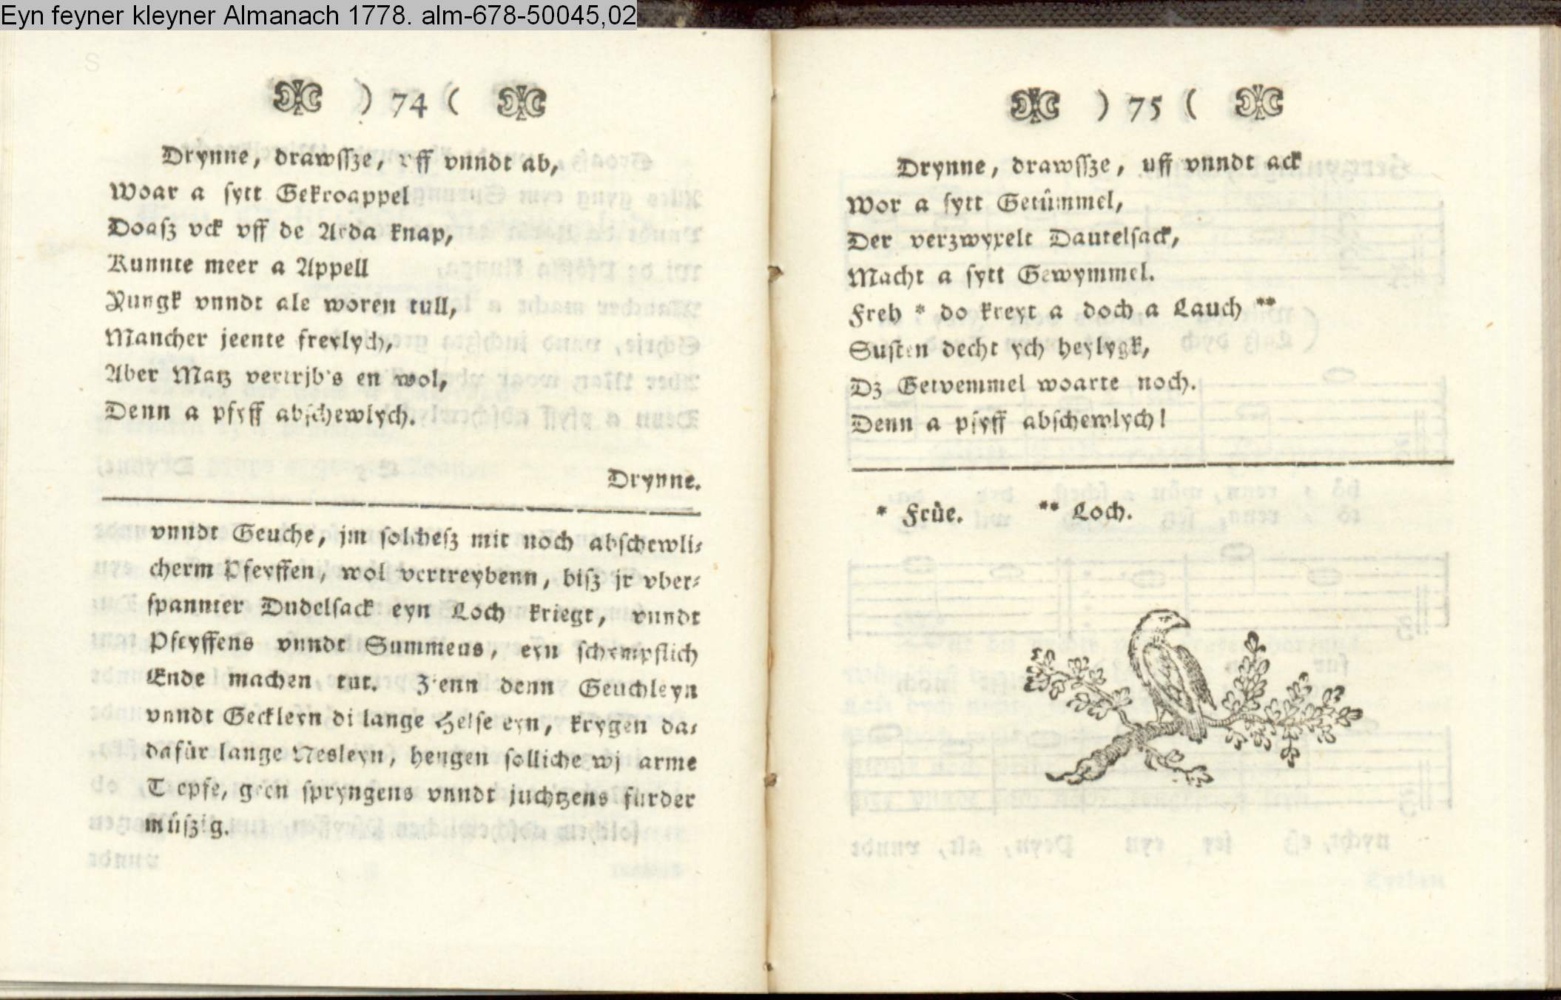 Eyn feyner kleyner Almanach 1778. alm-678-50045,02
) 74 (
Drynne, drawſſze, vff vnndt ab,
Woar a ſytt Gekroappel
Doaſz vck vff de Arda knap,
Kunnte meer a Appell
Yungk vnndt ale woren tull,
Mancher jeente freylych,
Aber Matz vertrjb's en wol,
Denn a pfyff abſchewlych.
Drynne.
vnndt Geuche, jm ſolcheſz mit noch abſchewli-
cherm Pfeyffen, wol vertreybenn, biſz jr vber-
ſpannter Dudelſack eyn Loch kriegt, vnndt
Pfeyffens vnndt Summens, eyn ſchympflich
Ende machen tut. Z'enn denn Geuchleyn
vnndt Geckleyn di lange Helſe eyn, krygen da-
dafür lange Nesleyn, hengen ſolliche wj arme
Tepfe, geen ſpryngens vnndt juchtzens fürder
müſzig.
) 75 (
Drynne, drawſſze, uff vnndt ack
Wor a ſytt Getümmel,
Der verzwyxelt Dautelſack,
Macht a ſytt Gewymmel.
Freh * do kreyt a doch a Lauch **
Suſten decht ych heylygk,
Dz Getvemmel woarte noch.
Denn a pfyff abſchewlych!
* Früe. ** Loch.